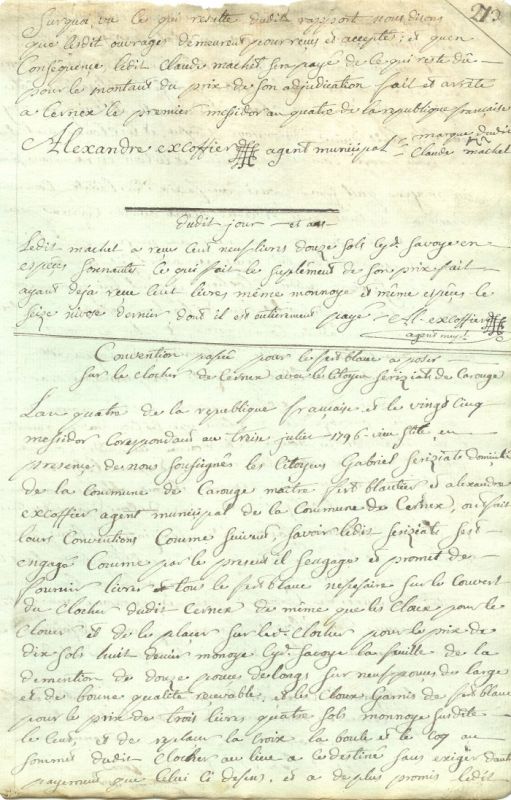 213
Surquoi, vu ce qui resulte dudit rapport nous disons
que ledit ouvrages demeurent pour reçus et acceptés; et qu'en
Conséquence ledit Claude machet sera payé de ce qui reste dû
pour le montant du prix de son adjudication fait et arrêté
a Cernex le premier messidor au quatre de la republique française
Alexandre excoffier agent municipal marque dudit
Claude machet
dudit jour et an
Ledit machet a reçu Cent neuf livres douze sols Cyd.t Savoye en
espèces sonnantes ce qui fait le suplément de son prix fait
ayant deja reçu huit livres même monnoye et même espèces le
seize nivose dernier dont il est entierement payé Al. excoffier
agent mup.l
Convention passée pour le fert blanc a poser
sur le Clocher de Cernex avec le Citoyen Seriziats de Carouge
L'an quatre de la republique francaise et le vingt cinq
messidor Corespondant au treize juliet 1796 vieu stile, en
presence de nous soussignés les Citoyens Gabriel Seriziats domicilié
de la Commune de Carouge maitre fert blantier et alexandre
excoffier agent municipal de la Commune de Cernex, ont fait
leurs Conventions Comme suivent, savoir ledit Seriziats s'est
engagé Comme par le present il s'engage et promet de
fournir livrer et tous le fert blanc nessesaire sur le Couvert
du Clocher dudit Cernex de même que les Cloix pour le
Clouer et de le placer sur led. Clocher pour le prix de
dix sols huit denier monoye Cyd.t Savoye la feuille de la
demention de douze pouces de longs sur neuf pouces de large
et de bonne qualité recevable, et le Cloux Garnis de fert blanc
pour le prix de trois livres quatre sols monnoye susdite
le Cent, et de replacer la Croix la boule et le Coq au
sommet dudit Clocher au lieu a ce destiné sans exiger d'autre
payement que Celui Ci dessus, et a de plus promis ledit